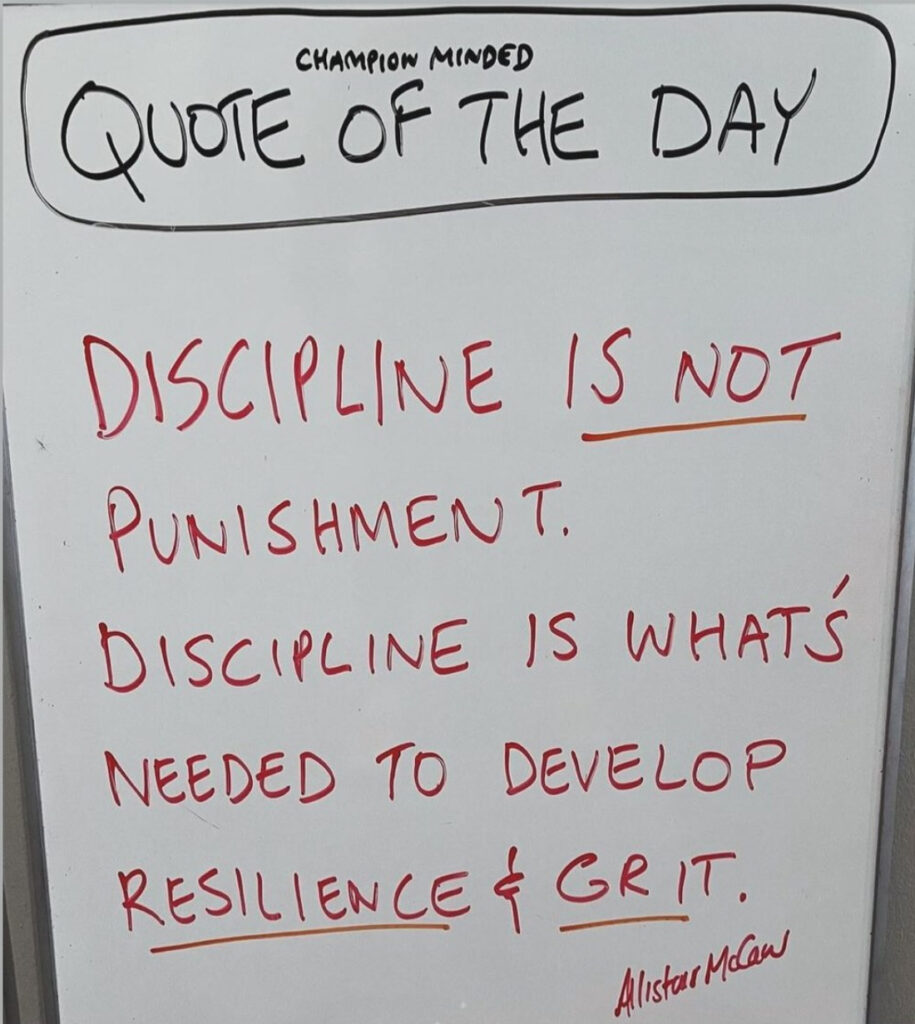 CHAMPION MINDED
QUOTE OF THE DAY
DISCIPLINE IS NOT
PUNISHMENT.
DISCIPLINE IS WHAT'S
NEEDED TO DEVELOP
RESILIENCE & GRIT.
Allistair McCaw